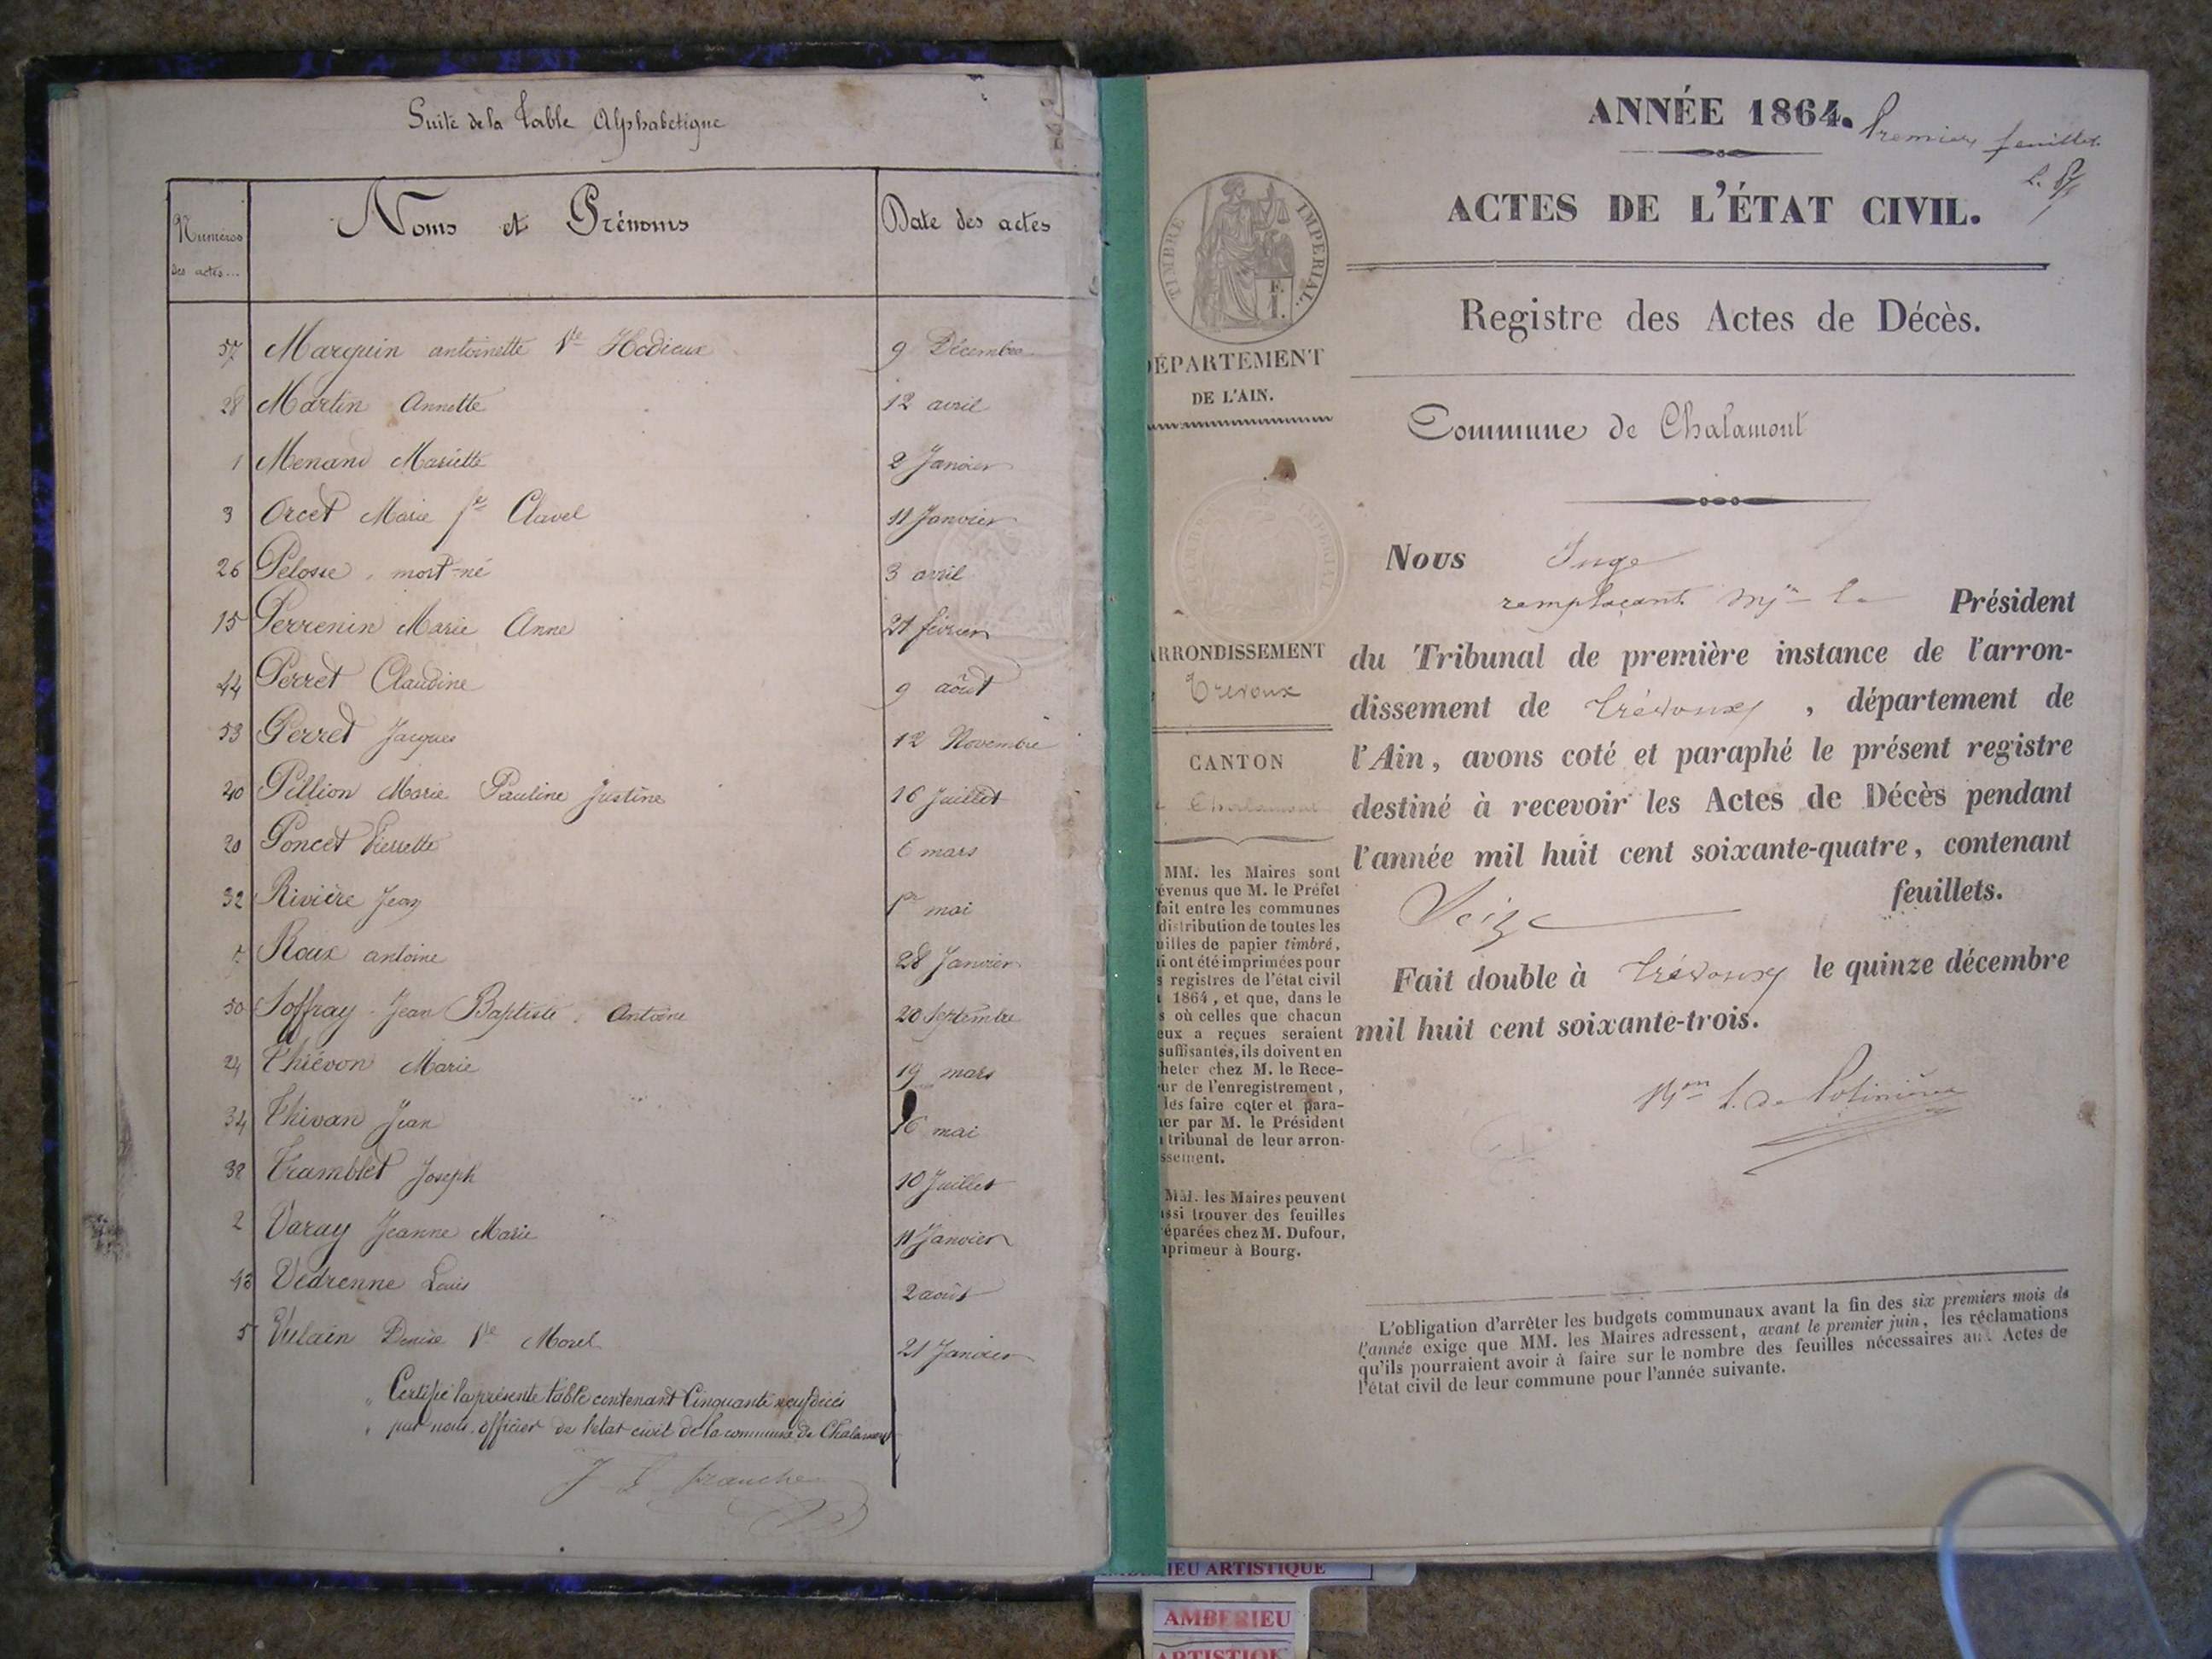 Suite de la Table Alphabétique
Numéros des actes... Noms et Prénoms Date des actes
57 Marguin antoinette Vve Hodieux 9 Décembre
28 Martin Annette 12 avril
1 Menand Mariette 2 Janvier
3 Orcet Marie fe Clavel 11 Janvier
26 Pelosse, mort-né 3 avril
15 Perrenin Marie Anne 21 février
44 Perret Claudine 9 août
53 Perret Jacques 12 Novembre
40 Pillion Marie Pauline Justine 16 Juillet
20 Poncet Pierrette 6 mars
32 Rivière Jean 1er mai
Roux antoine 28 Janvier
50 Joffray Jean Baptiste Antoine 20 Septembre
24 Thiévon Marie 19 mars
34 Thivan Jean 16 mai
38 Tramblet Joseph 10 Juillet
2 Varay Jeanne Marie 11 Janvier
43 Vedrenne Louis 2 août
5 Vulain Denise Vve Morel 21 Janvier
Certifié la présente table contenant Cinquante neuf décès
par nous officier de l'état civil de la commune de Chalamont
J Franche
ANNÉE 1864.
Premier feuillet
ACTES DE L'ÉTAT CIVIL.
TIMBRE IMPERIAL.
F.
1.
Registre des Actes de Décès.
DÉPARTEMENT
DE L'AIN.
Commune de Chalamont
Nous Juge
remplaçant Mr le Président
du Tribunal de première instance de l'arron-
dissement de Trévoux, département de
l'Ain, avons coté et paraphé le présent registre
destiné à recevoir les Actes de Décès pendant
l'année mil huit cent soixante-quatre, contenant
Seize feuillets.
Fait double à Trévoux le quinze décembre
mil huit cent soixante-trois.
ARRONDISSEMENT
Trévoux
CANTON
Chalamont
MM. les Maires sont
évenus que M. le Préfet
fait entre les communes
distribution de toutes les
uilles de papier timbré,
i ont été imprimées pour
s registres de l'état civil
1864, et que, dans le
s où celles que chacun
eux a reçues seraient
suffisantes, ils doivent en
heter chez M. le Rece-
ur de l'enregistrement,
les faire coter et para-
er par M. le Président
tribunal de leur arron-
ssement.
MM. les Maires peuvent
ssi trouver des feuilles
éparées chez M. Dufour,
primeur à Bourg.
L'obligation d'arrêter les budgets communaux avant la fin des six premiers mois de
l'année exige que MM. les Maires adressent, avant le premier juin, les réclamations
qu'ils pourraient avoir à faire sur le nombre des feuilles nécessaires aux Actes de
l'état civil de leur commune pour l'année suivante.
IEU ARTISTIQUE
AMBERIEU
ARTISTIQUE